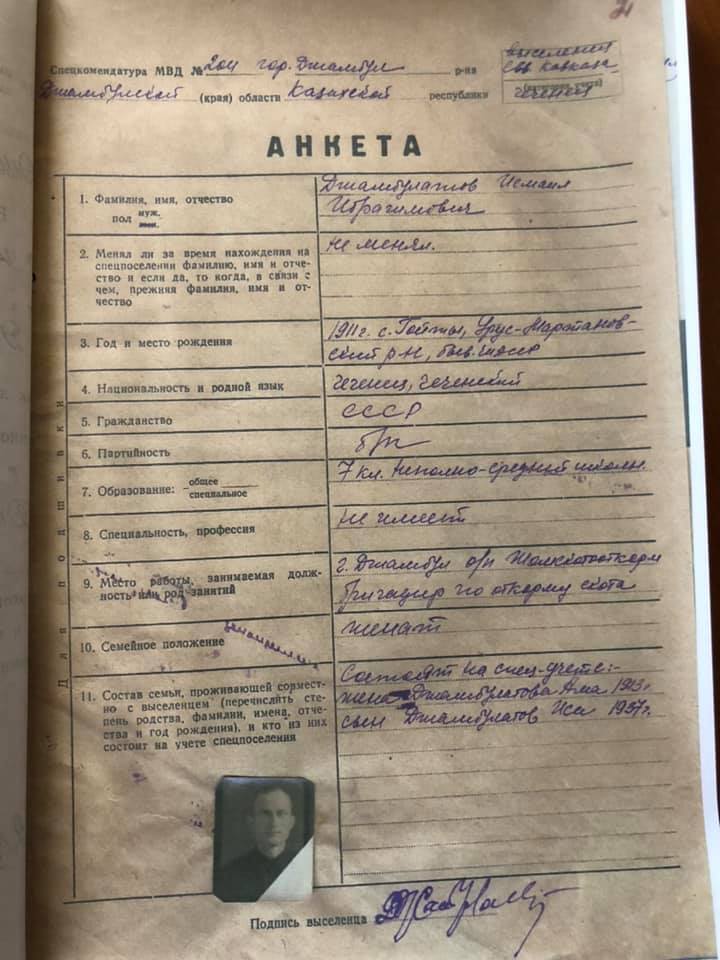 21
Спецкомендатура МВД № 204 гор. Джамбул р-на
Джамбулской (края) области Казахской республики
выселенец
Сев. Кавказа
чеченец
АНКЕТА
1. Фамилия, имя, отчество
пол муж.
жен.
Джамбулатов Исмаил
Ибрагимович
2. Менял ли за время нахождения на
спецпоселении фамилию, имя и отче-
ство и если да, то когда, в связи с
чем, прежняя фамилия, имя и от-
чество
не менял.
3. Год и место рождения
1911 г. с. Гойты, Урус-Мартанов-
ский р-н, быв. ЧИАССР
4. Национальность и родной язык
чеченец, чеченский
5. Гражданство
СССР
6. Партийность
б/п
7. Образование: общее
специальное
7 кл. неполно-средней школы.
8. Специальность, профессия
не имеет
9. Место работы, занимаемая долж-
ность или род занятий
г. Джамбул
бригадир по откорму скота
10. Семейное положение
женат
11. Состав семьи, проживающей совмест-
но с выселенцем (перечислить сте-
пень родства, фамилии, имена, отче-
ства и год рождения), и кто из них
состоит на учете спецпоселения
Состоят на спец-учете:-
жена Джамбулатова Ама 1913 г.
сын Джамбулатов Иси 1937 г.
Для подшивки
Подпись выселенца